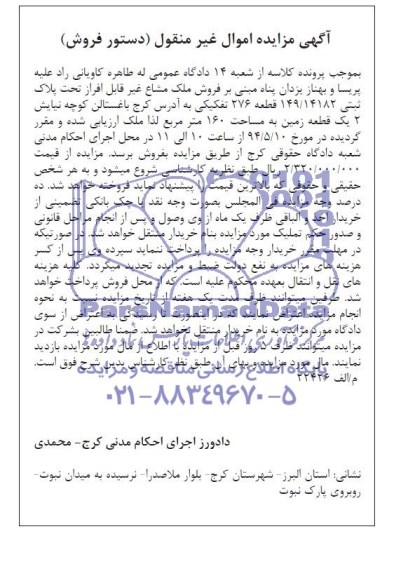 آگهی مزایده اموال غیر منقول (دستور فروش)
بموجب پرونده کلاسه از شعبه ۱۴ دادگاه عمومی له طاهره کاویانی راد علیه
پریسا و بهناز یزدان پناه مبنی بر فروش ملک مشاع غیر قابل افراز تحت پلاک
ثبتی ۱۴۹/۱۴۱۸۲ قطعه ۲۷۶ تفکیکی به آدرس کرج باغستان کوچه نیایش
۲ یک قطعه زمین به مساحت ۱۶۰ متر مربع لذا ملک ارزیابی شده و مقرر
گردیده در مورخ ۹۴/۵/۱۰ از ساعت ۱۰ الی ۱۱ در محل اجرای احکام مدنی
شعبه دادگاه حقوقی کرج از طریق مزایده بفروش برسد. مزایده از قیمت
۲/۳۳۰/۰۰۰/۰۰۰ ریال طبق نظریه کارشناسی شروع میشود و به هر شخص
حقیقی و حقوقی که بالاترین قیمت را پیشنهاد نماید فروخته خواهد شد. ده
درصد وجه مزایده فی المجلس بصورت وجه نقد یا چک بانکی تضمینی از
خریدار اخذ و الباقی ظرف یک ماه از وی وصول و پس از انجام مراحل قانونی
و صدور حکم تملیک مورد مزایده بنام خریدار منتقل خواهد شد. در صورتیکه
در مهلت مقرر خریدار وجه مزایده را پرداخت ننماید سپرده وی پس از کسر
هزینه های مزایده به نفع دولت ضبط و مزایده تجدید میگردد. کلیه هزینه
های نقل و انتقال بعهده محکوم علیه است. که از محل فروش پرداخت خواهد
شد. طرفین میتوانند ظرف مدت یک هفته از تاریخ مزایده نسبت به نحوه
انجام مزایده اعتراض نمایند که در اینصورت تا رسیدگی به اعتراض از سوی
دادگاه مورد مزایده به نام خریدار منتقل نخواهد شد. ضمنا طالبین بشرکت در
مزایده میتوانند ظرف ۵ روز قبل از مزایده با اطلاع از مال مورد مزایده بازدید
نمایند. مال مورد مزایده و بهای آن طبق نظر کارشناسی بدین شرح فوق است.
م/الف ۲۲۴۲۶
ParsNamadData
پایگاه اطلاع رسانی مناقصه و مزایده
۰۲۱-۸۸۳۴۹۶۷۰-۵
دادورز اجرای احکام مدنی کرج- محمدی
نشانی: استان البرز- شهرستان کرج- بلوار ملاصدرا- نرسیده به میدان نبوت-
روبروی پارک نبوت